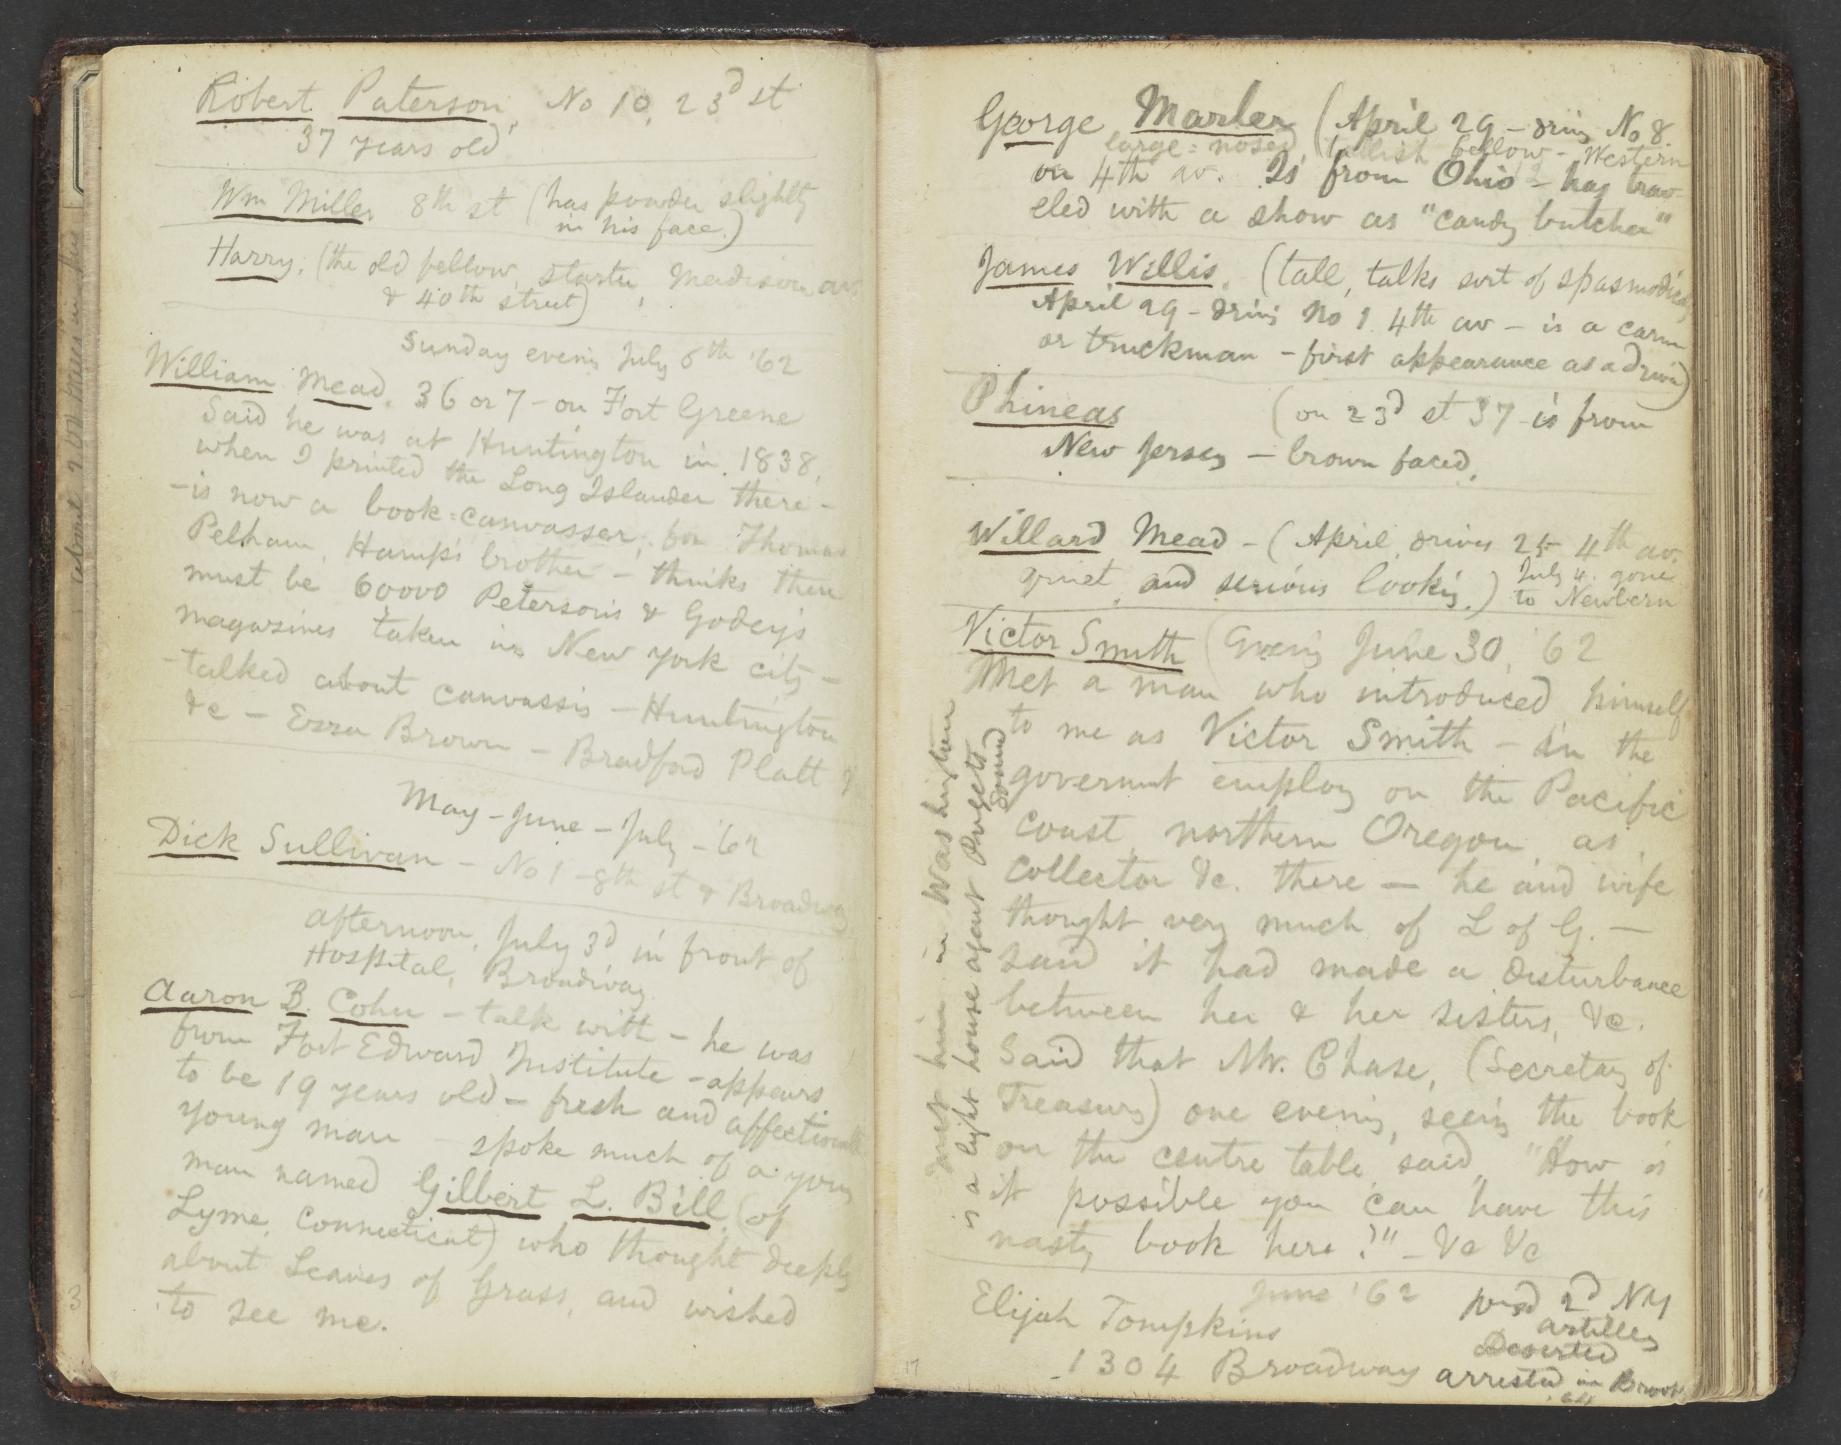 Robert Paterson, No 10, 23d st
37 years old
Wm Miller 8th st (has powder slightly
in his face.)
Harry, (the old fellow, starter, Madison av
& 40th street)
Sunday evening July 6th '62
William Mead, 36 or 7 – on Fort Greene
Said he was at Huntington in 1838,
when I printed the Long Islander there –
– is now a book-canvasser, for Thomas
Pelham, Hamp's brother – thinks there
must be 60000 Peterson's & Godey's
magazines taken in New York city –
– talked about canvassing – Huntington
&c – Ezra Brown – Bradford Platt &
May – June – July – '62
Dick Sullivan – No 1 – 8th st & Broadway
afternoon, July 3d in front of
Hospital, Broadway
Aaron B. Cohn – talk with – he was
from Fort Edward Institute – appears
to be 19 years old – fresh and affectionate
young man – spoke much of a young
man named Gilbert L. Bill (of
Lyme, Connecticut) who thought deeply
about Leaves of Grass, and wished
to see me.
3
George Marler (April 29 – driving No 8.
large-nosed, tallish fellow – Western
on 4th av. Is from Ohio – has trav-
eled with a show as "candy butcher"
James Willis. (tall, talks sort of spasmodical,
April 29 – driving No 1 4th av – is a carm
or truckman – first appearance as a driver)
Phineas (on 23d st 37 is from
New Jersey – brown faced.
Willard Mead – (April, drives 25 4th av.
quiet and serious looking.) July 4. gone
to Newbern
Victor Smith (Evening June 30, '62
Met a man who introduced himself
to me as Victor Smith – in the
governmt employ on the Pacific
coast, northern Oregon, as
collector &c. there – he and wife
thought very much of L of G. –
said it had made a disturbance
between her & her sisters, &c.
Said that Mr. Chase, (Secretary of
Treasury) one evening, seeing the book
on the centre table, said, "How is
it possible you can have this
nasty book here?" – &c &c
met him in Washington
is a light house agent Pugets
Sound
June '62
Elijah Tompkins
1304 Broadway
joined 2d NY
artillery
Deserted
arrested in Brook
17